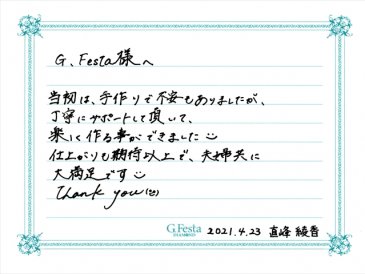 G.Festa様へ
当初は、手作りで不安もありましたが、
丁寧にサポートして頂いて、
楽しく作る事ができました
仕上がりも期待以上で、夫婦共に
大満足です
Thank you
G.Festa
2021.4.23 直峰 綾香